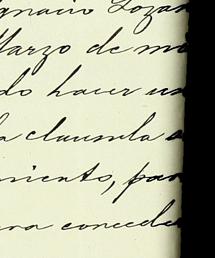 gnacio Lozan
Marzo de mi
do hacer un
a clausula a
miento, par
ra concede